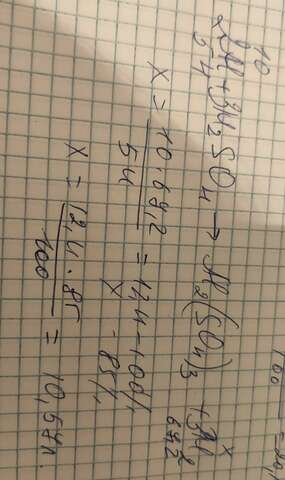 10 x
2Al + 3H2SO4 → Al2(SO4)3 + 3H2
54 67,2
x = 10·67,2 / 54 = 12,4 - 100%
x - 85%
x = 12,4·85 / 100 = 10,54л.
100